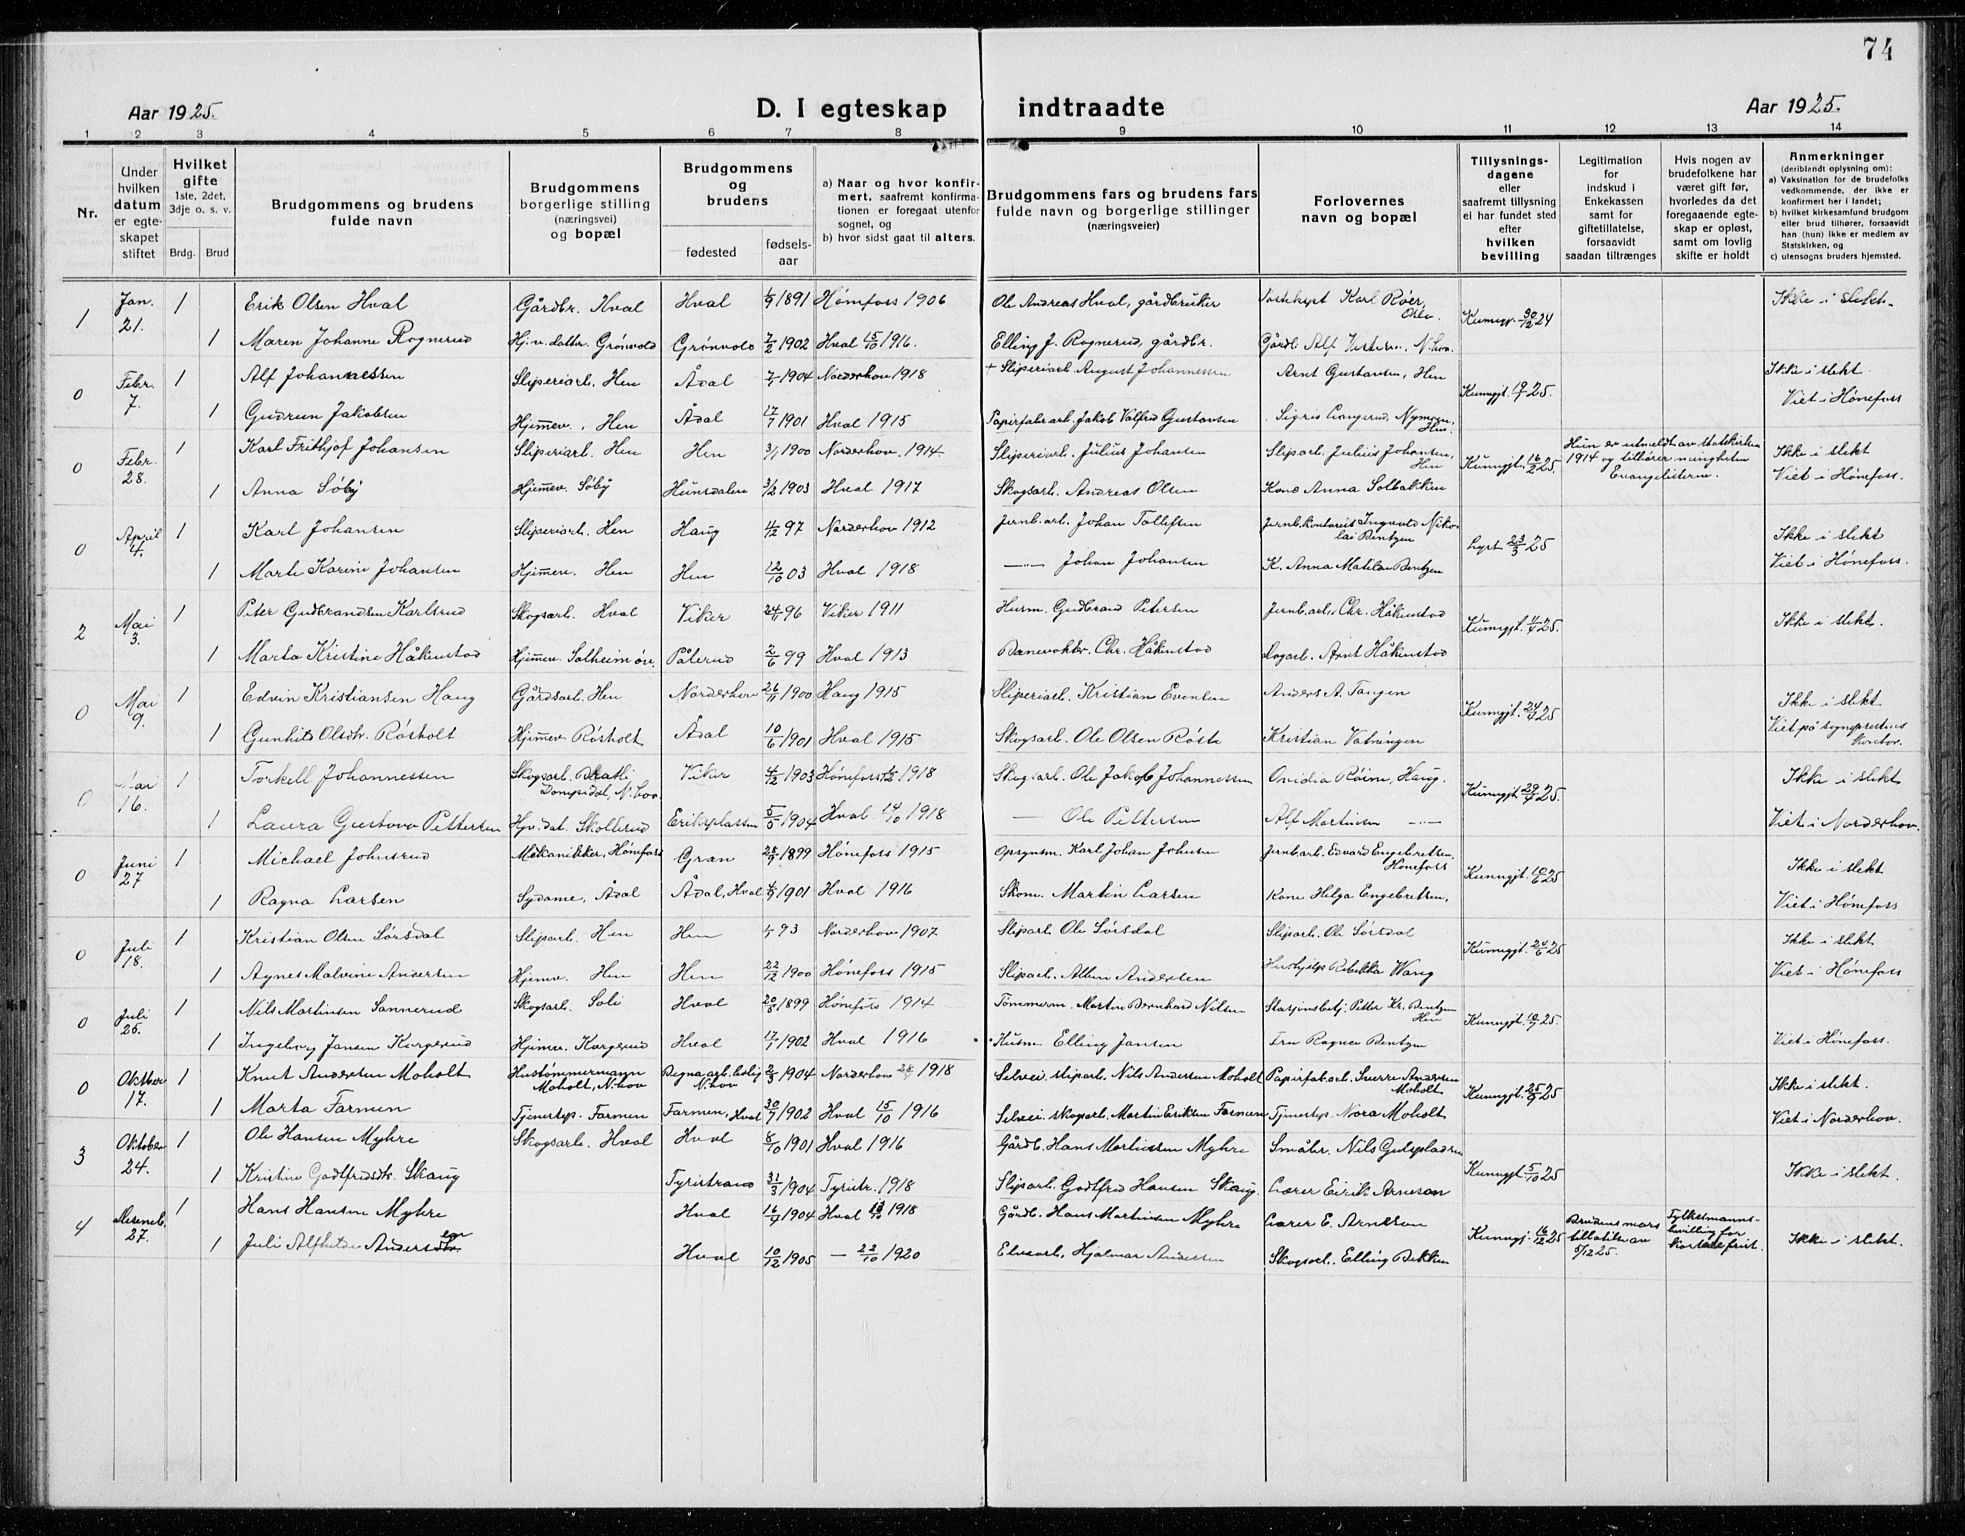 74
Aar 1925.
D. I egteskap indtraadte
Aar 1925.
1 2 3 4 5 6 7 8 9 10 11 12 13 14
Nr.
Under hvilken datum er egteskapet stiftet
Hvilket gifte 1ste, 2det, 3dje o. s. v.
Brdg. Brud
Brudgommens og brudens fulde navn
Brudgommens borgerlige stilling (næringsvei) og bopæl
Brudgommens og brudens
fødested
fødselsaar
a) Naar og hvor konfirmert, saafremt konfirmationen er foregaat utenfor sognet, og
b) hvor sidst gaat til alters.
Brudgommens fars og brudens fars fulde navn og borgerlige stillinger (næringsveier)
Forlovernes navn og bopæl
Tillysningsdagene eller saafremt tillysning ei har fundet sted efter hvilken bevilling
Legitimation for indskud i Enkekassen samt for giftetillatelse, forsaavidt saadan tiltrænges
Hvis nogen av brudefolkene har været gift før, hvorledes da det foregaaende egteskap er opløst, samt om lovlig skifte er holdt
Anmerkninger (deriblendt oplysning om):
a) Vaksination for de brudefolks vedkommende, der ikke er konfirmert her i landet;
b) hvilket kirkesamfund brudgom eller brud tilhører, forsaavidt han (hun) ikke er medlem av Statskirken, og
c) utensogns bruders hjemsted.
1 Jan. 21. 1 Erik Olsen Hval Gårdbr. Hval Hval 1891 Hønefoss 1906 Ole Andreas Hval, gårdbruker Karl Røer, Kunngj. 30/12 24 Ikke i slekt.
1 Maren Johanne Rognerud Hj.v. datter Grønvold Grønvold 7/2 1902 Hval 15/10 1916. Elling J. Rognerud, gårdbr. Gårdb. Alf
0 Febr. 7. 1 Alf Johannessen Sliperiarb. Hen Ådal 1904 Norderhov 1918 + Sliperiarb. August Johannessen Arnt Gustavsen, Hen Kunngjt. 25. Ikke i slekt.
1 Gudrun Jakobsen Hjemmev., Hen Ådal 17/7 1901 Hval 1915 Papirfabr.arb. Jakob Valfrid Gustavsen Sigrid Hen. Viet i Hønefoss
0 Febr. 28. 1 Karl Frithjof Johansen Sliperiarb. Hen Hen 3/1 1900 Norderhov 1914 Sliperiarb. Julius Johansen Sliparb. Julius Johansen, Hen Kunngjt. 16/2 25 Hun er utmeldt av statskirken 1914 og tilhører menigheten Evangelisterne. Ikke i slekt
1 Anna Søby Hjemmev. Søby Hunsdalen 3/2 1903 Hval 1917 Skogsarb. Andreas Olsen Kone Anna Solbakken Viet i Hønefoss.
0 April 4. 1 Karl Johansen Sliperiarb. Hen Haug 4/12 97 Norderhov 1912 Jernb.arb. Johan Tollefsen Jernb.kontorist Ingvald Nikolai Bentzen Lyst 23/3 25 Ikke i slekt
1 Marte Karine Johansen Hjemmev. Hen Hen 12/10 03 Hval 1918 —"— Johan Johansen K. Anna Matilde Bentzen Viet i Hønefoss.
2 Mai 3. 1 Peter Gudbrandsen Karlsrud Skogsarb. Hval Viker 24/11 96 Viker 1911 Husm. Gudbrand Petersen Jernb.arb. Chr. Håkenstad Kunngjt. 25. Ikke i slekt.
1 Marta Kristine Håkenstad Hjemmev. Solheim øv. Pålerud 2/6 99 Hval 1913 Banevokter Chr. Håkenstad Dagarb. Arnt Håkenstad
0 Mai 9. 1 Edvin Kristiansen Haug Gårdsarb. Hen Norderhov 26/11 1900 Haug 1915 Sliperiarb. Kristian Evensen Anders A. Tangen Kunngjt. 24/4 25 Ikke i slekt
1 Gunhild Olsdtr. Røsholt Hjemmev Røsholt Ådal 10/6 1901 Hval 1915 Skogsarb. Ole Olsen Kristian Vatningen Viet på sogneprestens kontor.
0 Mai 16. 1 Torkell Johannessen Skogsarb. Viker 4/12 1903 Hønefoss 1918 Skogsarb. Ole Jakob Johannessen Ovidia Haug. Kunngjt. 29/4 25. Ikke i slekt
1 Laura Gustava Pettersen Hjv. dat. Skollerud Eriksplassen 5/5 1904 Hval 14/10 1918 — Ole Pettersen Alf Martinsen —"— Viet i Norderhov.
0 Juni 27 1 Michael Johnsrud Mekanikker, Hønefoss Gran 1899 Hønefoss 1915 Opsynsm. Karl Johan Johnsen Jernb.arb. Edvard Engebretsen, Hønefoss Kunngjt. 10/6 25 Ikke i slekt
1 Ragna Larsen Sydame, Ådal Ådal, Hval 1901 Hval 1916 Skom. Martin Larsen Kone Helga Engebretsen, Viet i Hønefoss
0 Juli 18. 1 Kristian Olsen Sørsdal Sliparb. Hen Hen 93 Norderhov 1907 Sliparb Ole Sørsdal Sliparb. Ole Sørsdal Kunngjt. 24/6 25 Ikke i slekt
1 Agnes Malvine Andersen Hjemv. Hen Hen 22/12 1900 Hønefoss 1915 Sliparb. Albin Andersen Hushjelp Rebekka Wang Viet i Hønefoss
0 Juli 25. 1 Nils Martinsen Sannerud Skogsarb. Soli Hval 20/8 1899 Hønefoss 1914 Tømmerm. Martin Bernhard Nilsen Stasjonsbetj. Petter Kr. Bentzen Hen Kunngjt. 10/7 25.
1 Ingeborg Jansen Korgerud Hjemv. Korgerud Hval 17/1 1902 Hval 1916 Husm Elling Jansen Fru Ragna Bentzen Viet i Hønefoss.
0 Oktber 17. 1 Knut Andersen Moholt Hustømmermann Moholt, N.hov Begna arb.bolig N.hov 2/3 1904 Norderhov 1918 Selvei. sliparb. Nils Andersen Moholt Papirfab.arb. Sverre Andersen Moholt Kunngjt. 25/9 25 Ikke i slekt.
1 Marta Farmen Tjenestep. Farmen Farmen, Hval 30/7 1902 Hval 15/10 1916 Selvei. skogarb. Martin Eriksen Farmen Tjenestep. Nora Moholt Viet i Norderhov.
3 Oktober 24. 1 Ole Hansen Myhre Skogsarb. Hval Hval 8/10 1901 Hval 1916 Gårdb. Hans Martinsen Myhre Småbr. Nils Gulspladsen Kunngjt. 5/10 25
1 Kristine Godtfredsdtr. Skaug Tyristrand 31/3 1904 Tyristr. 1918 Sliparb. Godtfred Hansen Skaug. Lærer Eirik Arneson Ikke i slekt.
4 Desemb. 27. 1 Hans Hansen Myhre Hval 16/4 1904 Hval 1918 Gårdb. Hans Martinsen Myhre Lærer E. Arneson Kunngj. 16/12 25 Brudens mors tillatelse av 5/12 25. Fylkesmannsbevilling for kortere frist. Ikke i slekt.
1 Juli Alfhilde Andersen Hval 10/12 1905 — 22/10 1920 Elvearb. Hjalmar Andersen Skogsarb. Elling Bekken